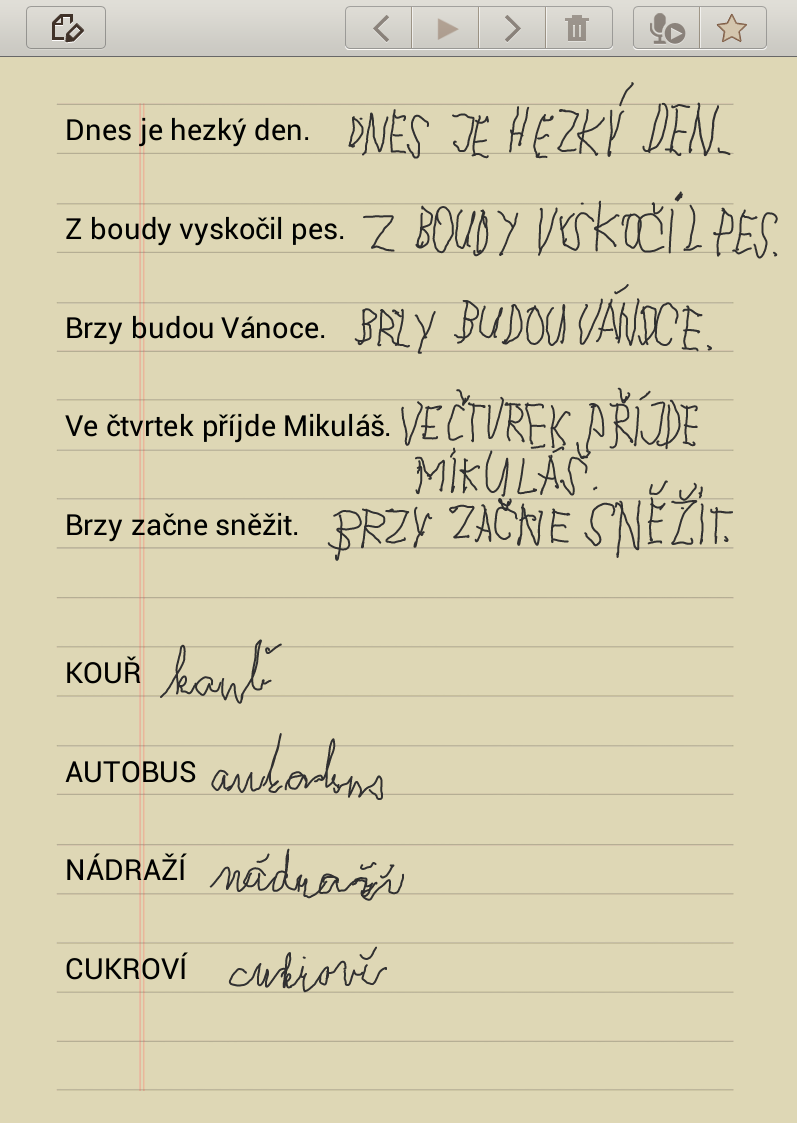 Dnes je hezký den. DNES JE HEZKÝ DEN.
Z boudy vyskočil pes. Z BOUDY VYSKOČIL PES.
Brzy budou Vánoce. BRZY BUDOU VÁNOCE.
Ve čtvrtek příjde Mikuláš. VE ČTVREK PŘÍJDE
MIKULÁŠ.
Brzy začne sněžit. BRZY ZAČNE SNĚŽIT.
KOUŘ kouř
AUTOBUS autobus
NÁDRAŽÍ nádraží
CUKROVÍ cukroví